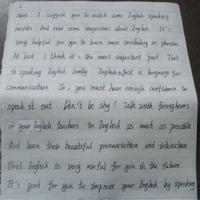 Next, I suggest you to watch some English speaking
movies and read some magazines about English. It's
very helpful for you to learn more vocabulary or phrases.
At last I think it's the most important part. That
is speaking English loudly. English is just a language for
communication. So, you must have enough confidence to
speak it out. Don't be shy! Talk with foreigners
or your English teachers in English as much as possible
And learn their beautiful pronunciation and intonation.
Oral English is very useful for you in the future.
It's good for you to improve your English by speaking